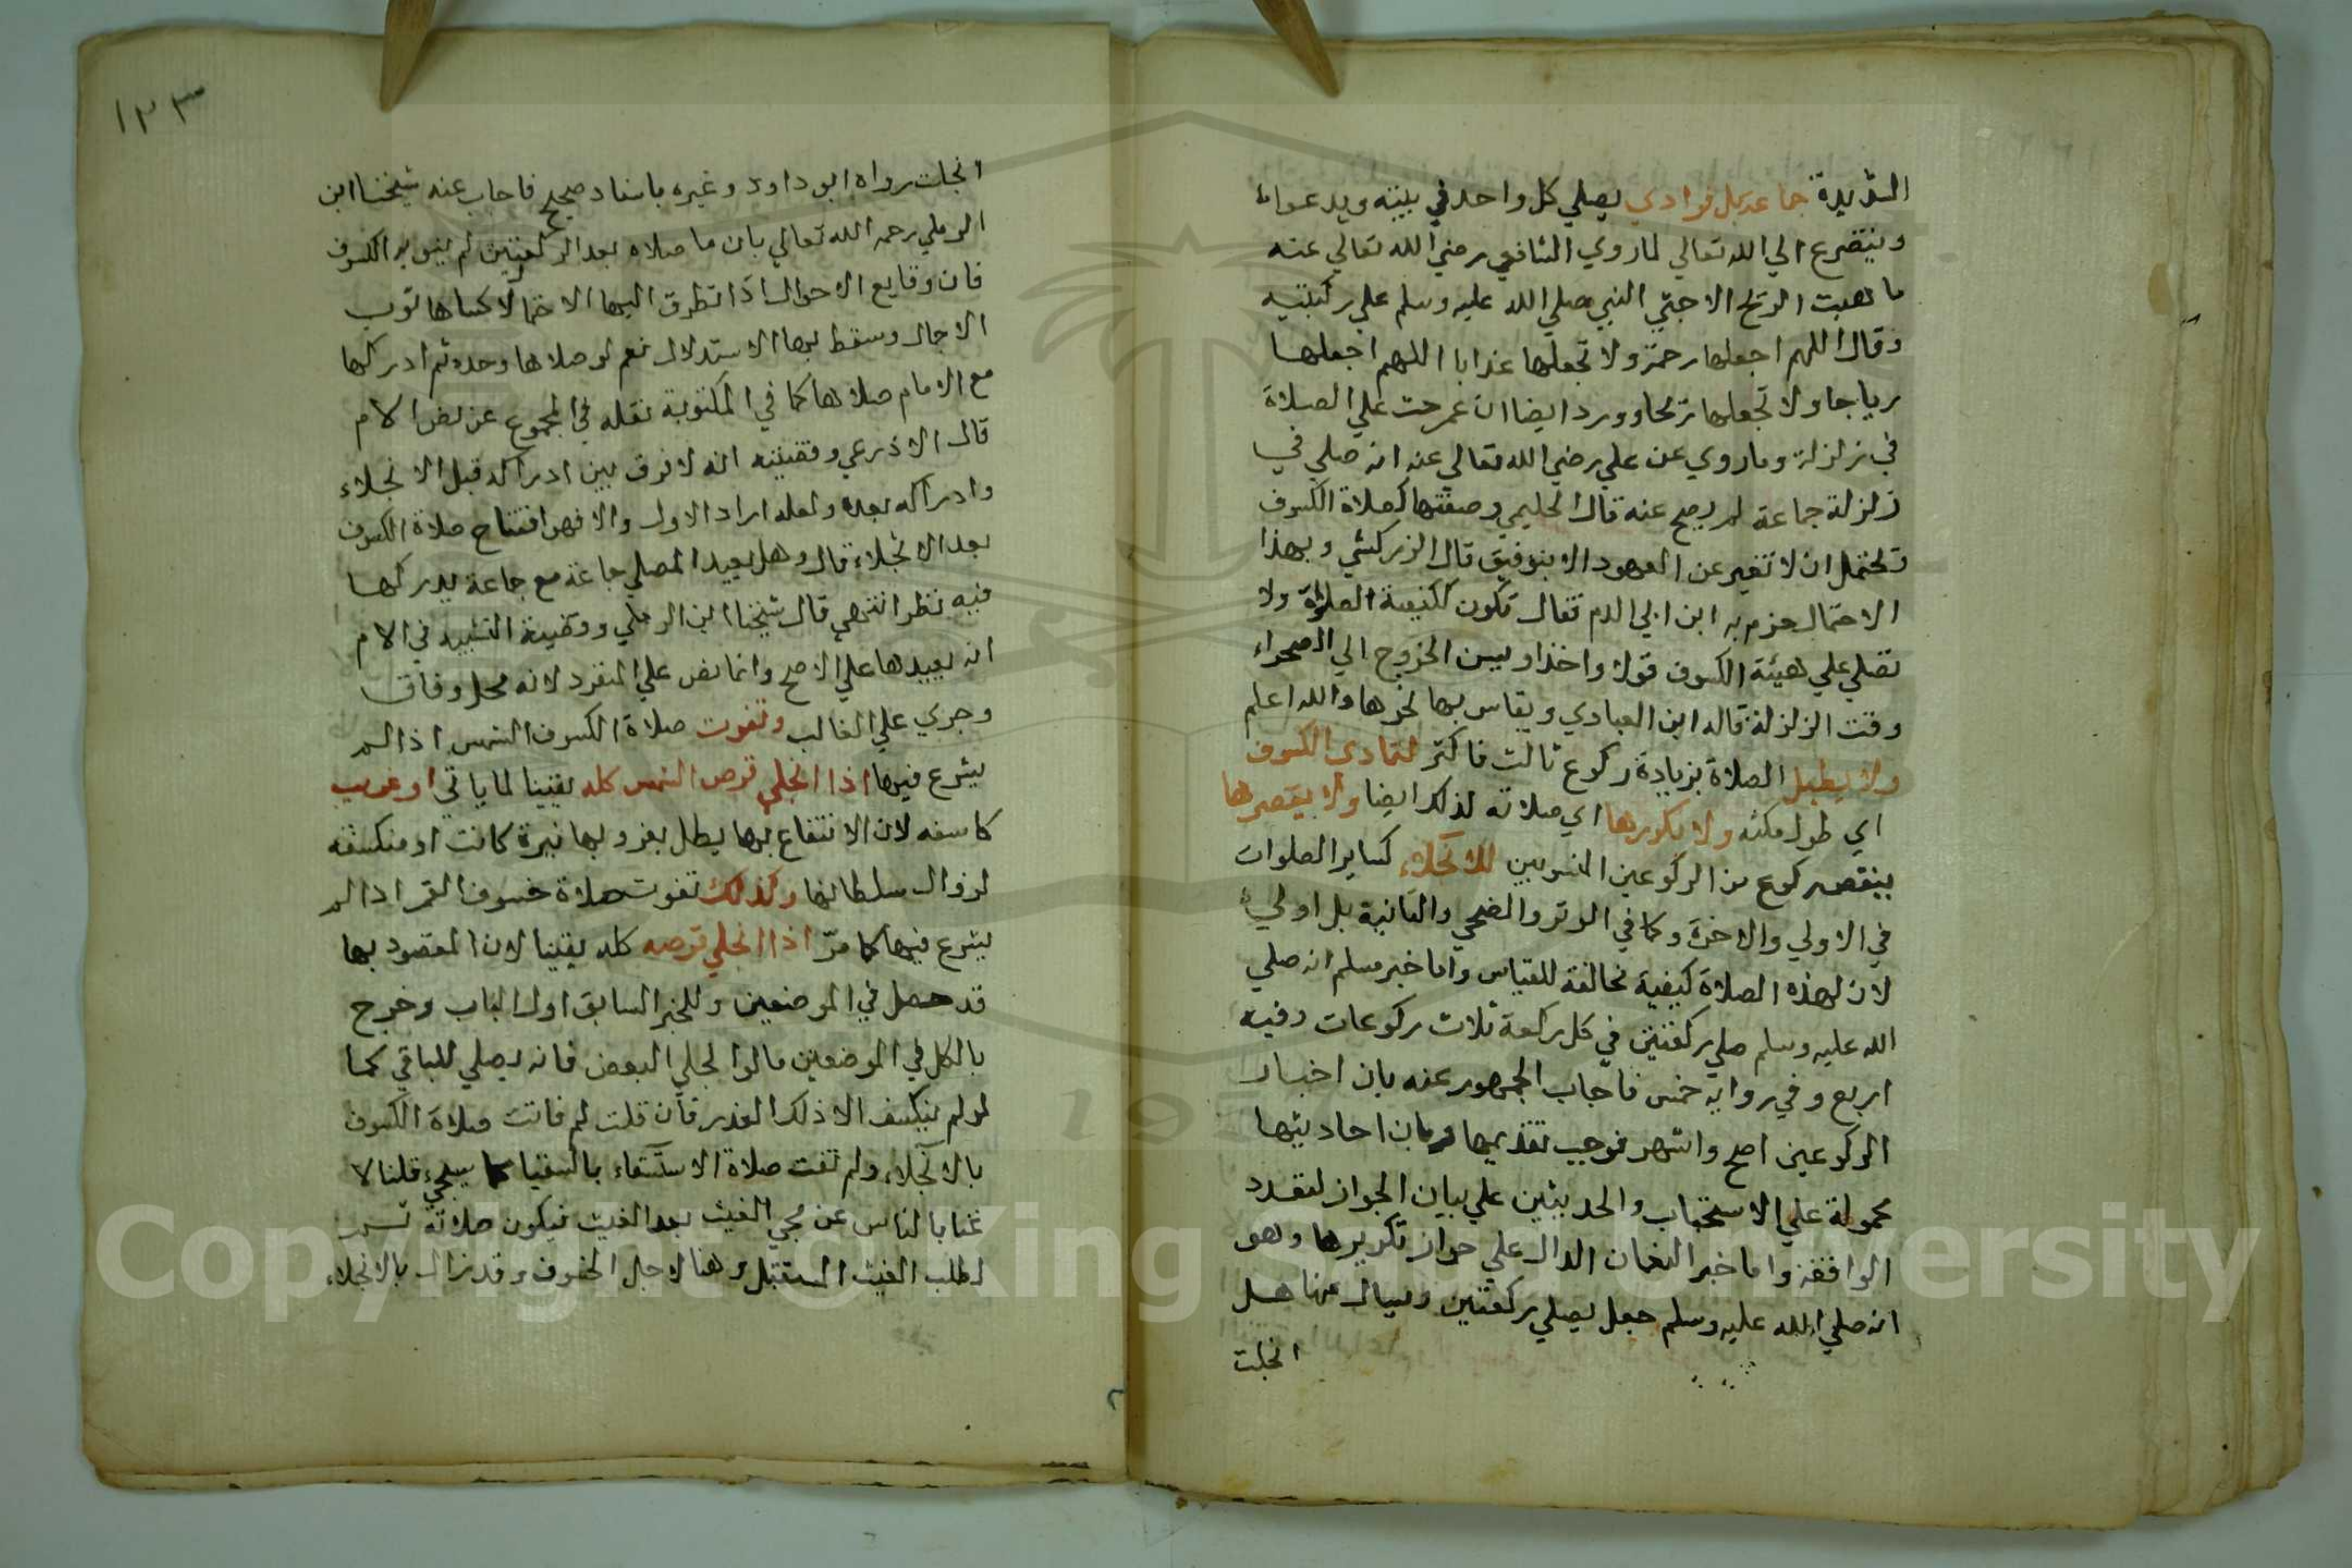 الشديدة جماعة بل فرادي يصلي كل واحد في بيته ويدعوا
ويتضرع الي الله تعالي لما روي الشافعي رضي الله تعالي عنه
ما هبت الريح الا جثي النبي صلي الله عليه وسلم علي ركبتيه
وقال اللهم اجعلها رحمة ولا تجعلها عذابا اللهم اجعلها
رياحا ولا تجعلها ريحا وورد ايضا ان عمر حث علي الصلاة
في زلزلة وما روي عن علي رضي الله تعالي عنه انه صلي في
زلزلة جماعة لم يصح عنه قال الحليمي وصفتها كصلاة الكسوف
ويحتمل ان لا تغير عن المعهود الا بتوفيق قال الزركشي وبهذا
الاحتمال جزم به ابن ابي الدم فقال تكون ككيفية الصلاة ولا
تصلي علي هيئة الكسوف قولا واحدا ويسن الخروج الي الصحراء
وقت الزلزلة قاله ابن العبادي ويقاس بها نحوها والله اعلم
ولا يطيل الصلاة بزيادة ركوع ثالث فاكثر لتمادي الكسوف
اي طول مكثه ولا يكررها اي صلاته لذلك ايضا ولا يقصرها
بنقص ركوع من الركوعين المنويين للانجلاء كساير الصلوات
في الاولي والاخرة وكما في الوتر والضحي والثانية بل اولي
لان لهذه الصلاة كيفية مخالفة للقياس واما خبر مسلم انه صلي
الله عليه وسلم صلي ركعتين في كل ركعة ثلاث ركوعات وفيه
اربع وفي رواية خمس فاجاب الجمهور عنه بان اخبار
الركوعين اصح واشهر فوجب تقديمها وبان احاديثها
محمولة علي الاستحباب والحديثين علي بيان الجواز لتعدد
الواقعة واما خبر النعمان الدال علي جواز تكريرها وهو
انه صلي الله عليه وسلم جعل يصلي ركعتين ويسال عنها هل
انجلت
١٢٣
انجلت رواه ابو داود وغيره باسناد صحيح فاجاب عنه شيخنا ابن
الرملي رحمه الله تعالي بان ما صلاه بعد الركعتين لم ينو به الكسوف
فان وقايع الاحوال اذا تطرق اليها الاحتمال كساها ثوب
الاجمال وسقط بها الاستدلال نعم لو صلاها وحده ثم ادركها
مع الامام صلاها كما في المكتوبة نقله في المجموع عن نص الام
قال الاذرعي وقضيته انه لا فرق بين ادراكه قبل الانجلاء
وادراكه بعده ولعله اراد الاول والا فهو افتتاح صلاة الكسوف
بعد الانجلاء قال وهل يعيد المصلي جماعة مع جماعة يدركها
فيه نظر انتهي قال شيخنا ابن الرملي وقضية التشبيه في الام
انه يعيدها علي الاصح وانما نص علي المنفرد لانه محل وفاق
وجري علي الغالب وتفوت صلاة الكسوف الشمس اذا لم
يشرع فيها اذا انجلي قرص الشمس كله يقينا لما ياتي او غربت
كاسفه لان الانتفاع بها يبطل بغروبها نيرة كانت او منكسفه
لزوال سلطانها وكذلك تفوت صلاة خسوف القمر اذا لم
يشرع فيها كما مرّ اذا انجلي قرصه كله يقينا لان المقصود بها
قد حصل في الموضعين وللخبر السابق اول الباب وخرج
بالكل في الموضعين ما لو انجلي البعض فانه يصلي للباقي كما
لو لم ينكسف الا ذلك القدر فان قلت لم فاتت صلاة الكسوف
بالانجلاء ولم تفت صلاة الاستسقاء بالسقيا كما سيجيء قلنا لا
غنا بالناس عن مجي الغيث بعد الغيث فيكون صلاته
لطلب الغيث المستقبل وهنا لاجل الخسوف وقد زال بالانجلاء
Copyright © King Saud University